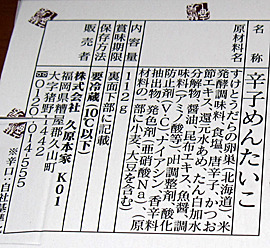 名称 辛子めんたいこ
原材料名 すけとうだらの卵巣(北海道)、米
発酵調味料、食塩、唐辛子、かつお
節エキス、還元水あめ、たん白加水
分解物、醤油、昆布エキス、魚醤、調
味料(アミノ酸等)、pH調整剤、酸化
防止剤(V.C)、ナイアシン、香辛料
抽出物、発色剤(亜硝酸Na)(原
材料の一部に小麦、大豆を含む)
内容量 112g
賞味期限 裏面下部に記載
保存方法 要冷蔵(10℃以下)
販売者 株式会社 久原本家 K01
福岡県糟屋郡久山町
大字猪野1442
0120-014-555
※辛口:自社基準